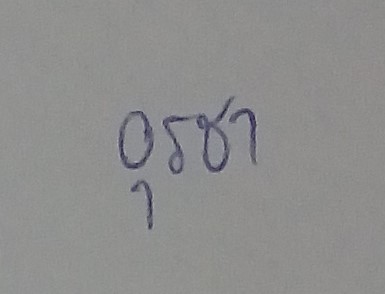 อุรชา